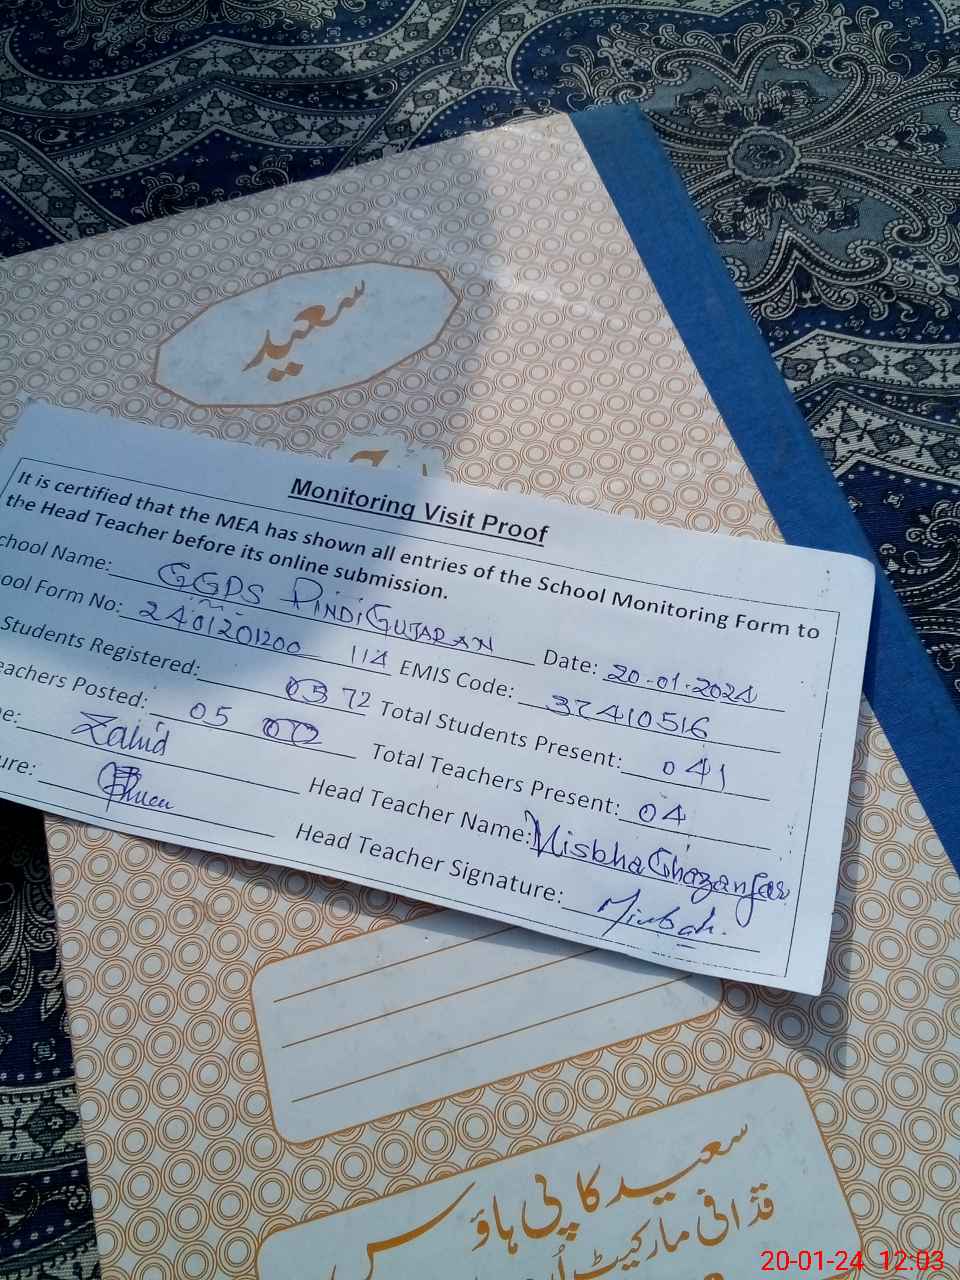 سعید
Monitoring Visit Proof
It is certified that the MEA has shown all entries of the School Monitoring Form to
the Head Teacher before its online submission.
chool Name: GGPS PINDI GUJARAN Date: 20-01-2024
ool Form No: 2401201200 114 EMIS Code: 37410516
Students Registered: 72 Total Students Present: 041
eachers Posted: 05 Total Teachers Present: 04
e: Zahid Head Teacher Name: Misbha Ghazanfar
ure: Head Teacher Signature: Misbah.
سعید کاپی ہاؤس
قذافی مارکیٹ
20-01-24 12:03